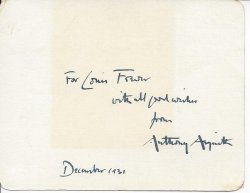 For Louis
with all good wishes
from
Anthony Asquith
December 1931